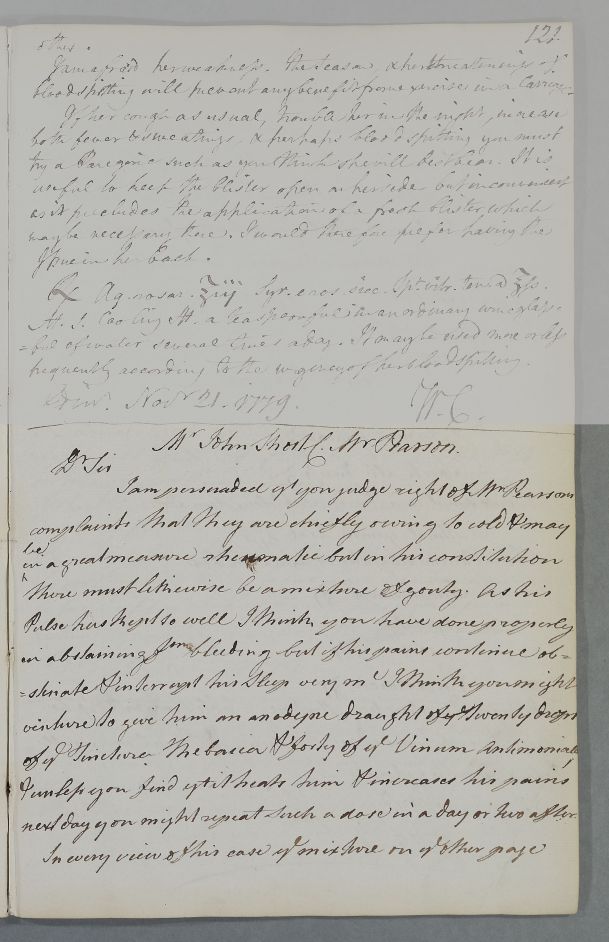 121
other.
I am afraid her weakness. the season, & her threatenings of
blood spitting will prevent any benefit from exercise in a Carriage.
If her cough as usual, trouble her in the night, increase
both fever & sweatings, & perhaps blood spitting you must
try a Paregoric such as you think she will best bear. It is
useful to keep the blister open on her side but inconvenient
as it precludes the application of a fresh blister, which
may be necessary there. I would therefore prefer having the
Issue in her back.
℞ Aq. rosar. ℥iij Syr. e ros. sicc. Spt. vitr. ten. a ʒss.
M. S. a teaspoonful in an ordinary wine glass-
=ful of water several times a day. It may be used more or less
frequently according to the urgency of her blood spitting.
Edinr. Novr 21. 1779. W. C.
Mr John Short C. Mr Pearson.
Dr Sir
I am persuaded yt you judge right of Mr Pearsons
complaints that they are chiefly owing to cold & may
be
in a great measure rheumatic but in his constitution
there must likewise be a mixture of gouty. As his
Pulse has kept so well I think you have done properly
in abstaining from bleeding but if his pains continue ob-
=stinate & interrupt his Sleep very mt I think you might
venture to give him an anodyne draught of yt twenty drops
of ye Tinctura Thebaica & forty of ye Vinum Antimoniale
& unless you find yt it heats him & increases his pains
next day you might repeat such a dose in a day or two after.
In every view of his case ye mixture on ye other page